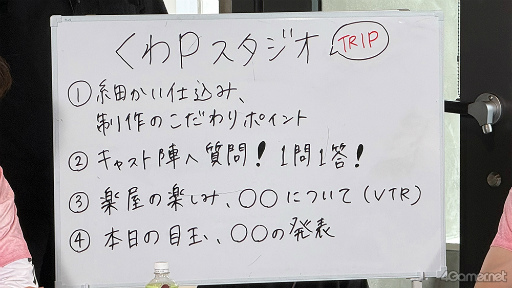 くわPスタジオ
TRIP
① 細かい仕込み、
制作のこだわりポイント
② キャスト陣へ質問！ 1問1答！
③ 楽屋の楽しみ、○○について（VTR）
④ 本日の目玉、○○の発表
4Gamer.net